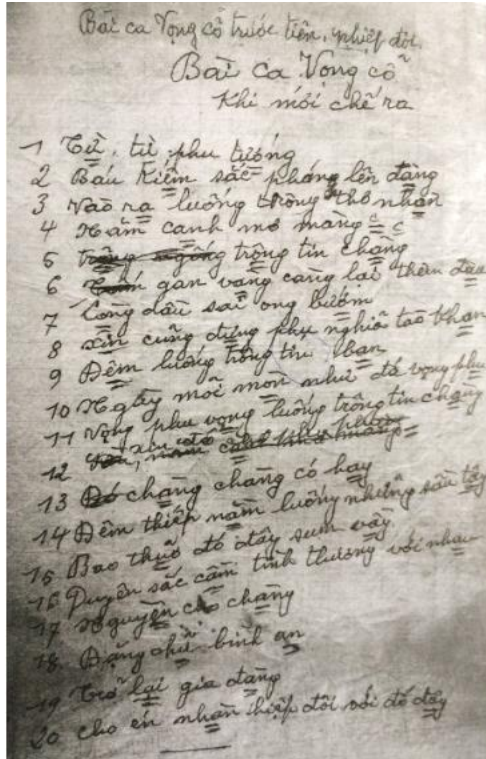 Bài ca Vọng cổ trước tiên, nhiệp đôi.
Bài ca Vọng cổ
Khi mới chế ra
1 Từ, từ phu tướng
2 Báu Kiếm sắc pháng lên đàng
3 Vào ra luống trông tho nhạn
4 Năm canh mơ màng
5 trông tin chàng
6 gan vàng càng lại thêm đau
7 Lòng dầu sai ong bướm
8 xin cũng đừng phụ nghĩa tào khan
9 Đêm luống trông tin bạn
10 Ngày mỏi mòn như đá vọng phu
11 Vọng phu vọng luống trông tin chàng
12 xin đó
13 chàng chàng có hay
14 Đêm thiếp nằm luống những sầu tây
15 Bao thuở đó đây sum vầy
16 Duyên sắc cầm tình thương với nhau
17 Nguyện cho chàng
18 Đặng chữ bình an
19 Trở lại gia đàng
20 cho én nhạn hiệp đôi với đó đây